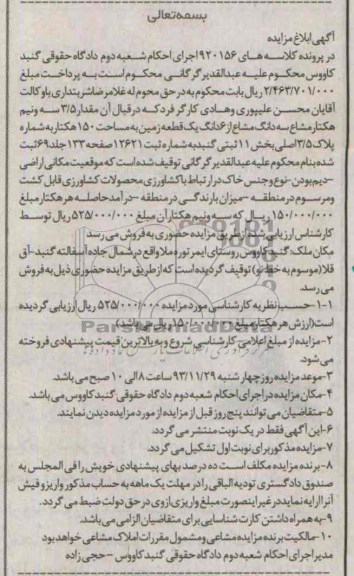 بسمه‌تعالی
آگهی ابلاغ مزایده
در پرونده کلاسه های ۹۲۰۱۵۶ اجرای احکام شعبه دوم دادگاه حقوقی گنبد
کاووس محکوم علیه عبدالقدیر گرگانی محکوم است به پرداخت مبلغ
۲/۴۶۳/۷۰۱/۰۰۰ ریال بابت محکوم به در حق محوم له غلامرضا شاربتداری باوکالت
آقایان محسن علیپوری وهادی کارگر فرد که در قبال آن مقدار ۳/۵ سه ونیم
هکتار مشاع سه دانگ مشاع از ۶ دانگ یک قطعه زمین به مساحت ۱۵۰ هکتار به شماره
پلاک ۳/۵ اصلی بخش ۱۱ ثبتی گنبد به شماره ثبت ۱۲۶۲۱ صفحه ۱۳۳ جلد ۶۹ ثبت
شده بنام محکوم علیه عبدالقدیر گرگانی توقیف شده است که موقعیت مکانی اراضی
-دیم بودن-نوع وجنس خاک در ارتباط با کشاورزی محصولات کشاورزی قابل کشت
ومرسوم در منطقه -میزان بارندگی در منطقه -در آمد حاصله هر هکتار مبلغ
۱۵۰/۰۰۰/۰۰۰ ریال که سه ونیم هکتار آن مبلغ ۵۲۵/۰۰۰/۰۰۰ ریال توسط
کارشناس ارزیابی شد از طریق مزایده حضوری به فروش می رسد
مکان ملک: گنبد کاووس روستای ایمر توره ملا واقع در شمال جاده آسفالته گنبد-آق
قلا (موسوم به خط نو) توقیف گردیده است که از طریق مزایده حضوری ذیل به فروش
می رسد.
۱-۱-حسب نظریه کارشناسی مورد مزایده ۵۲۵/۰۰۰/۰۰۰ ریال ارزیابی گردیده
است (ارزش هر هکتار مبلغ ۱۵۰/۰۰۰/۰۰۰ ریال می باشد)
۲-مزایده از مبلغ اعلامی کارشناسی شروع و به بالاترین قیمت پیشنهادی فروخته
می شود.
۳-موعد مزایده روز چهار شنبه ۹۳/۱۱/۲۹ ساعت ۸ الی ۱۰ صبح می باشد.
۴-مکان مزایده در اجرای احکام شعبه دوم دادگاه حقوقی گنبد کاووس می باشد.
۵-متقاضیان می توانند پنج روز قبل از مزایده از مورد مزایده دیدن نمایند.
۶-این آگهی فقط در یک نوبت منتشر می گردد.
۷-مزایده مذکور برای نوبت اول تشکیل می گردد.
۸-برنده مزایده مکلف است ده درصد بهای پیشنهادی خویش را فی المجلس به
صندوق دادگستری تودیه الباقی را در مهلت یک ماهه به حساب مذکور واریز و فیش
آنرا ارایه نماید در غیر اینصورت مبلغ واریزی ازوی در حق دولت ضبط می گردد.
۹-به همراه داشتن کارت شناسایی برای متقاضیان الزامی می باشد.
۱۰-مالکیت برنده مزایده مشاعی ومشمول مقررات املاک مشاعی خواهد بود
مدیر اجرای احکام شعبه دوم دادگاه حقوقی گنبد کاووس -حجی زاده
ParsNamadData